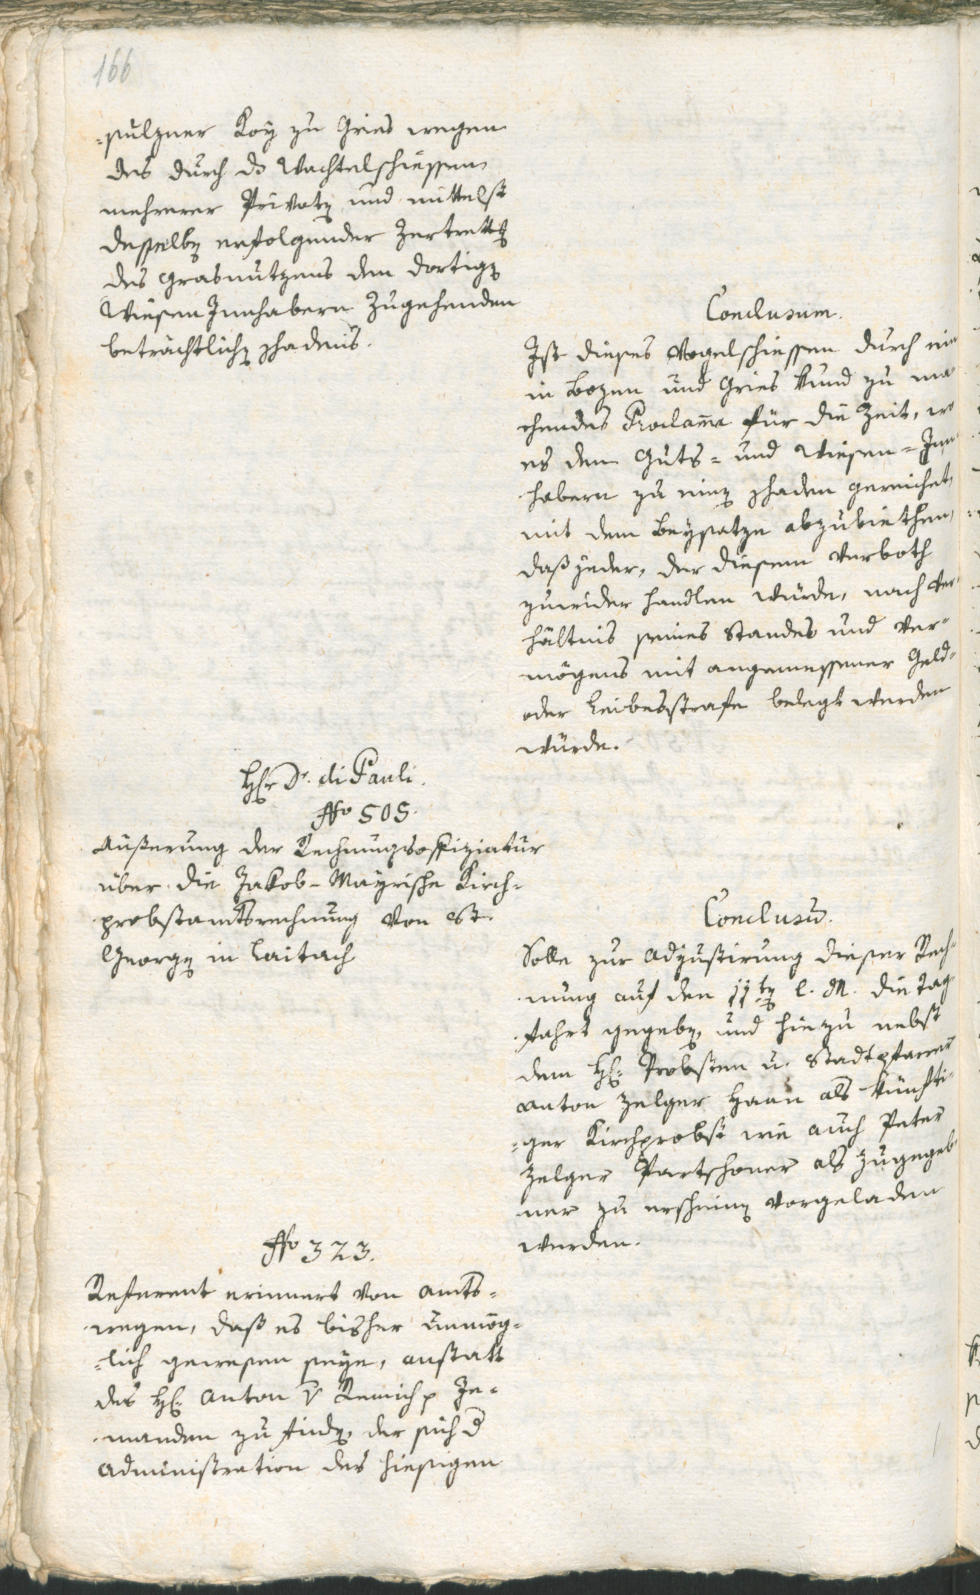 166
-sulzner Koÿ zu Gries wegen
des durch dz Wachtelschiessen
mehrerer Privatẽ und mittelst
desselbẽ erfolgender Zertrettg
des Grasnutzens den dortigẽ
Wiesen Innhabern zugehenden
beträchtlichẽ schadens.
Conclusum.
Ist dieses Vogelschiessen durch ein
in Bozen und Gries kund zu ma
chendes Proclama für die Zeit, wo
es den Guts- und Wiesen-Inn
habern zu einẽ schaden gereichet,
mit dem Beysatze abzubiethen,
daß jeder, der diesem Verboth
zuwider handlen würde, nach Ver-
hältnis seines Standes und Ver-
mögens mit angemessener Geld-
oder Leibesstrafe belegt werden
würde.
Hr Dr. di Pauli.
No 505.
Äußerung der Rechnungsoffiziatur
über die Jakob-Mayrische Kirch-
probstamtsrechnung von St.
Georgẽ in Laitach
Conclusũ.
Solle zur Adjustirung dieser Rech-
nung auf den 11tẽ l. M. die Tag
fahrt gegebẽ, und hiezu nebst
dem H: Probsten u. Stadtpfarrer
Anton Zelger Haan als künfti-
-ger Kirchprobst wie auch Peter
Zelger Partschoner als zugegeb
ner zu erscheinẽ vorgeladen
werden.
No 323.
Referent erinnert von Amts-
wegen, daß es bisher unmög-
-lich gewesen seye, anstatt
des H: Anton v Remich p Je-
manden zu findẽ, der sich d
Administration des hiesigen